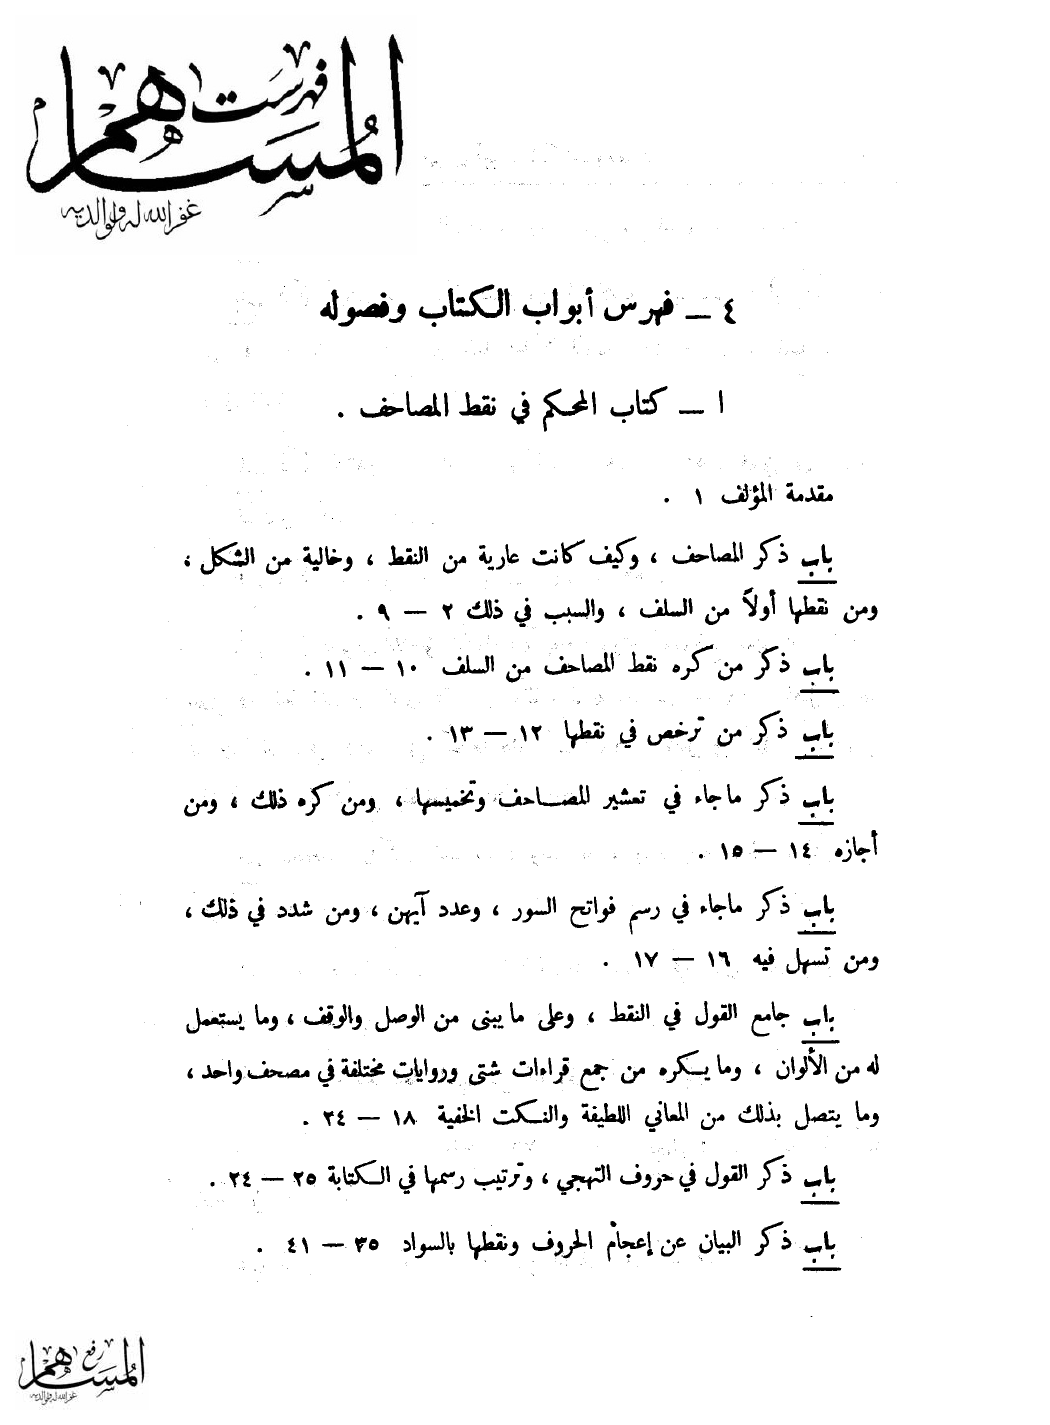 فهرست
المساهم
غفر الله له ولوالديه
٤ ــ فهرس أبواب الكتاب وفصوله
ا ــ كتاب المحكم في نقط المصاحف .
مقدمة المؤلف ١ .
باب ذكر المصاحف ، وكيف كانت عارية من النقط ، وخالية من الشكل ،
ومن نقطها أولاً من السلف ، والسبب في ذلك ٢ — ٩ .
باب ذكر من كره نقط المصاحف من السلف ١٠ — ١١ .
باب ذكر من ترخص في نقطها ١٢ — ١٣ .
باب ذكر ماجاء في تعشير المصاحف وتخميسها ، ومن كره ذلك ، ومن
أجازه ١٤ — ١٥ .
باب ذكر ماجاء في رسم فواتح السور ، وعدد آيهن ، ومن شدد في ذلك ،
ومن تسهل فيه ١٦ — ١٧ .
باب جامع القول في النقط ، وعلى ما يبنى من الوصل والوقف ، وما يستعمل
له من الألوان ، وما يكره من جمع قراءات شتى وروايات مختلفة في مصحف واحد ،
وما يتصل بذلك من المعاني اللطيفة والنكت الخفية ١٨ — ٢٤ .
باب ذكر القول في حروف التهجي ، وترتيب رسمها في الكتابة ٢٥ — ٢٤ .
باب ذكر البيان عن إعجام الحروف ونقطها بالسواد ٣٥ — ٤١ .
رفع
المساهم
غفر الله له ولوالديه